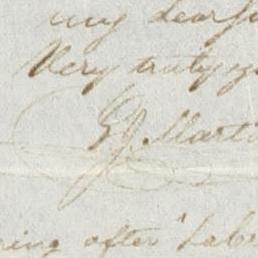 my dear
Very truly y
G. J. Marti
ring after "Lab